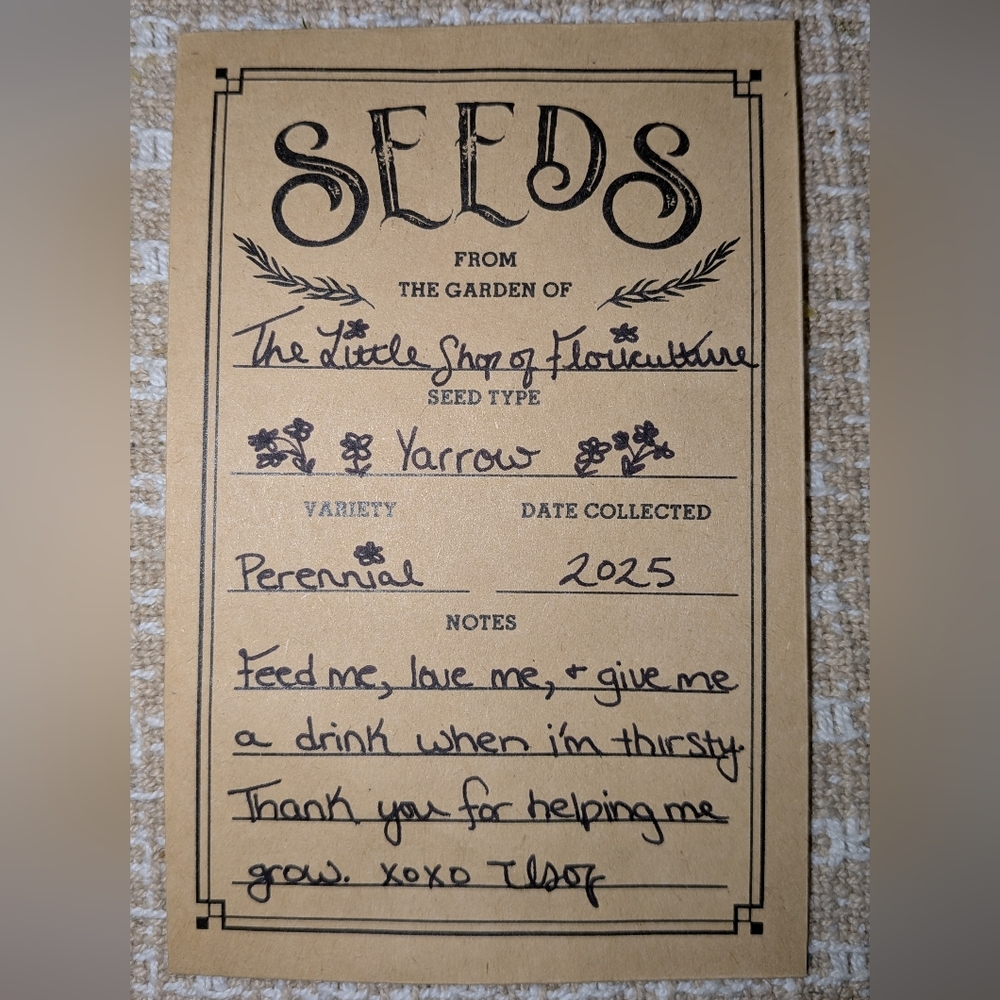 SEEDS
FROM
THE GARDEN OF
The Little Shop of Floriculture
SEED TYPE
Yarrow
VARIETY DATE COLLECTED
Perennial 2025
NOTES
Feed me, love me, + give me
a drink when i'm thirsty.
Thank you for helping me
grow. xoxo TLSOF